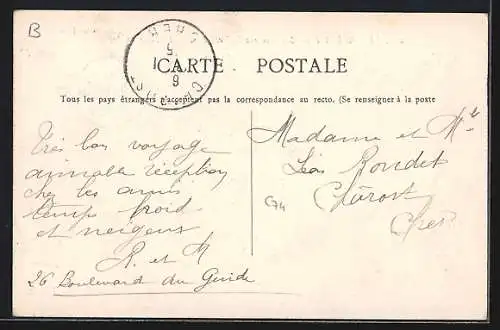 B
CHER
CARTE POSTALE
Tous les pays étrangers n'acceptent pas la correspondance au recto. (Se renseigner à la poste
Très bon voyage
aimable réception
chez les amis
temps froid
et neigeux
R. et M
26 Boulevard du Guide
Madame et Mr
Léon Rondet
Chârost
Cher
C74